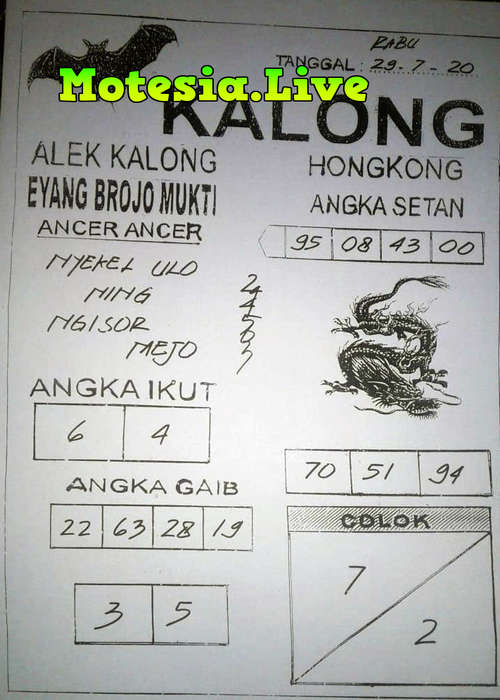 RABU
TANGGAL : 29-7-20
Motesia.Live
KALONG
ALEK KALONG
EYANG BROJO MUKTI
ANCER ANCER
NYEKEL ULO
NING
NGISOR
MEJO
HONGKONG
ANGKA SETAN
95 08 43 00
ANGKA IKUT
6 4
ANGKA GAIB
22 63 28 19
3 5
70 51 94
COLOK
7
2